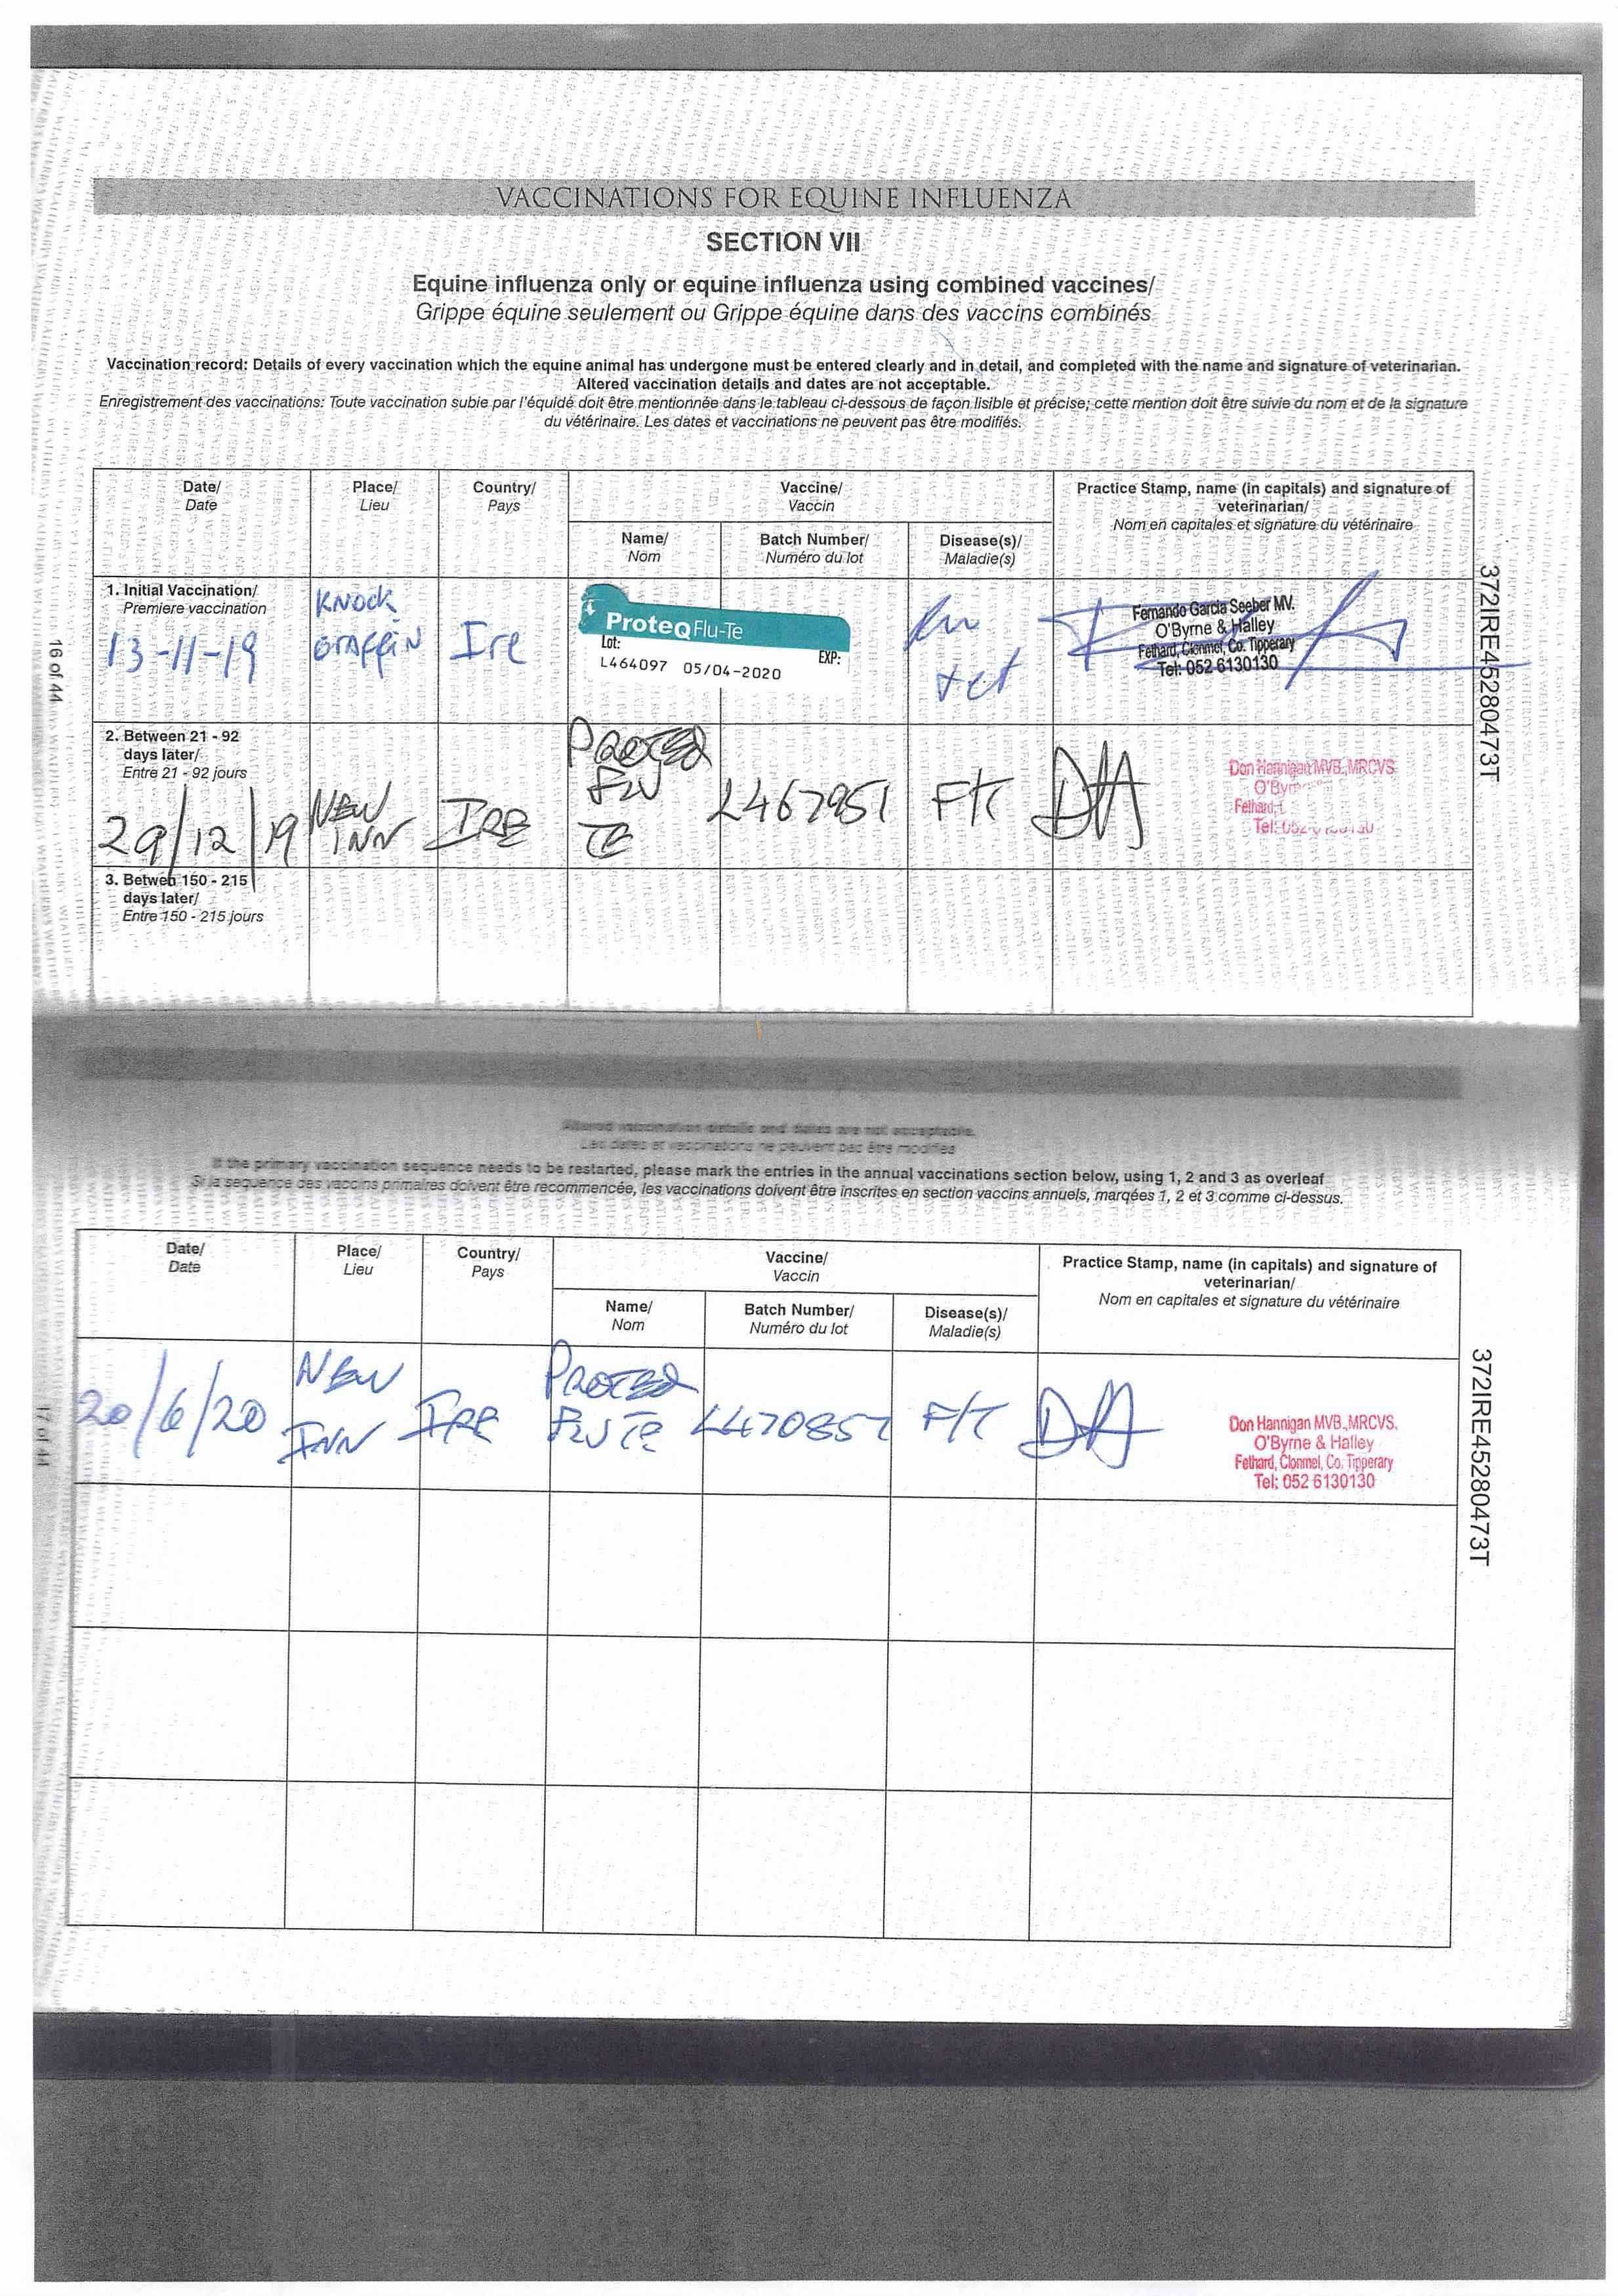 VACCINATIONS FOR EQUINE INFLUENZA
SECTION VII
Equine influenza only or equine influenza using combined vaccines/
Grippe équine seulement ou Grippe équine dans des vaccins combinés
Vaccination record: Details of every vaccination which the equine animal has undergone must be entered clearly and in detail, and completed with the name and signature of veterinarian.
Altered vaccination details and dates are not acceptable.
Enregistrement des vaccinations: Toute vaccination subie par l'équidé doit être mentionnée dans le tableau ci-dessous de façon lisible et précise; cette mention doit être suivie du nom et de la signature
du vétérinaire. Les dates et vaccinations ne peuvent pas être modifiés.
Date/
Date
Place/
Lieu
Country/
Pays
Vaccine/
Vaccin
Practice Stamp, name (in capitals) and signature of
veterinarian/
Nom en capitales et signature du vétérinaire
Name/
Nom
Batch Number/
Numéro du lot
Disease(s)/
Maladie(s)
1. Initial Vaccination/
Premiere vaccination
13-11-19
KNOCK
GRAFFIN
Ire
ProteqFlu-Te
Lot:
EXP:
L464097 05/04-2020
tet
Fernando Garcia Seeber MV.
O'Byrne & Halley
Felhard, Clonmel, Co. Tipperary
Tel: 052 6130130
2. Between 21 - 92
days later/
Entre 21 - 92 jours
29/12/19
NEW
INN
IRE
FLU
TE
L467951
F/T
DH
Don Hannigan MVB.,MRCVS.
Felhard,
Tel:
3. Betwen 150 - 215
days later/
Entre 150 - 215 jours
16 of 44
372IRE45280473T
Altered vaccination details and dates are not acceptable.
Les dates et vaccinations ne peuvent pas être modifiés
If the primary vaccination sequence needs to be restarted, please mark the entries in the annual vaccinations section below, using 1, 2 and 3 as overleaf
Si la sequence des vaccins primaires doivent être recommencée, les vaccinations doivent être inscrites en section vaccins annuels, marqées 1, 2 et 3 comme ci-dessus.
Date/
Date
Place/
Lieu
Country/
Pays
Vaccine/
Vaccin
Practice Stamp, name (in capitals) and signature of
veterinarian/
Nom en capitales et signature du vétérinaire
Name/
Nom
Batch Number/
Numéro du lot
Disease(s)/
Maladie(s)
20/6/20
NEW
INN
IRE
FLU TE
L470857
F/T
DH
Don Hannigan MVB.,MRCVS.
O'Byrne & Halley
Felhard, Clonmel, Co. Tipperary
Tel: 052 6130130
17 of 44
372IRE45280473T